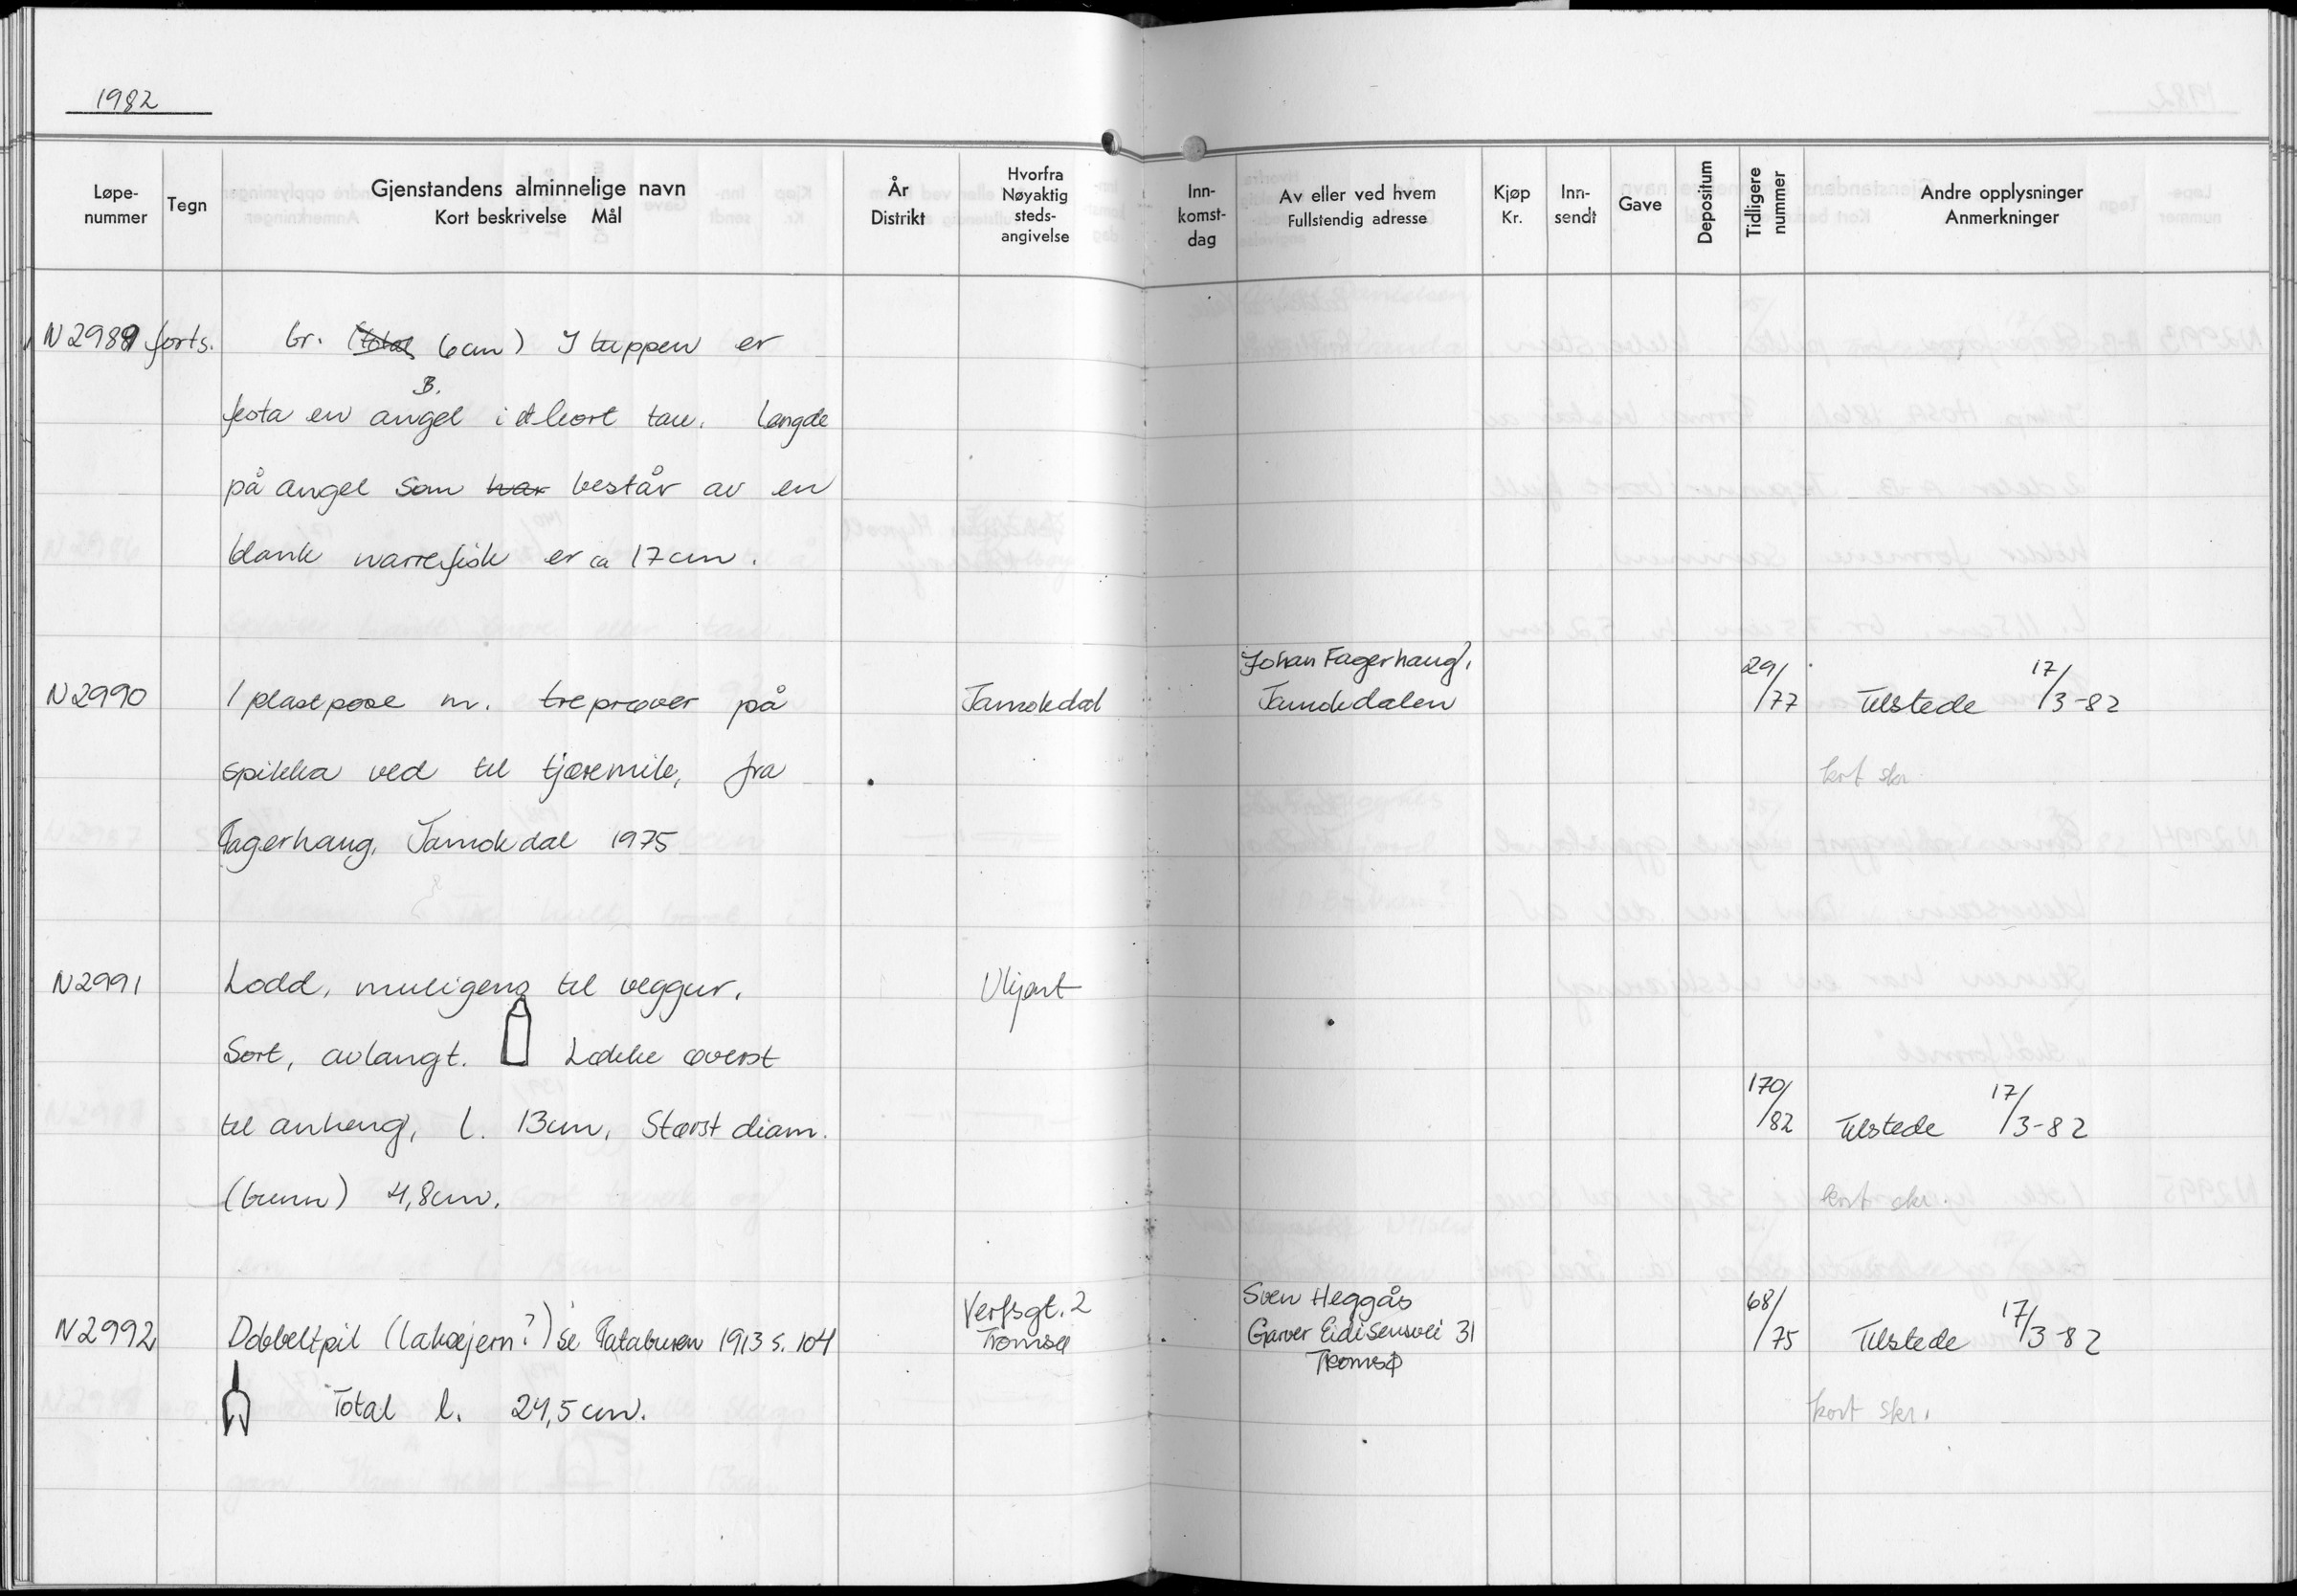 1982
Løpe-
nummer
Tegn
Gjenstandens alminnelige navn
Kort beskrivelse Mål
År
Distrikt
Hvorfra
Nøyaktig
steds-
angivelse
Inn-
komst-
dag
Av eller ved hvem
Fullstendig adresse
Kjøp
Kr.
Inn-
sendt
Gave
Depositum
Tidligere
nummer
Andre opplysninger
Anmerkninger
N2989 forts. br. (total 6cm) I tuppen er
B.
festa en angel i et kort tau. Lengde
på angel som har består av en
blank narrefisk er ca 17cm.
N2990 1 plastpose m. treprøver på
spikka ved til tjæremile, fra
Fagerhaug, Tamokdal 1975
Tamokdal
Johan Fagerhaug,
Tamokdalen
29/77
Tilstede 17/3-82
kort skr
N2991 Lodd, muligens til veggur.
Sort, avlangt. Løkke øverst
til anheng, l. 13cm, Størst diam.
(bunn) 4,8cm.
Ukjent
170/82
Tilstede 17/3-82
kort skr.
N2992 Dobbeltpil (laksejern?) se Fataburen 1913 s. 104
Total l. 24,5cm.
Verfsgt. 2
Tromsø
Sven Heggås
Garver Eidisensvei 31
Tromsø
68/75
Tilstede 17/3-82
kort skr.